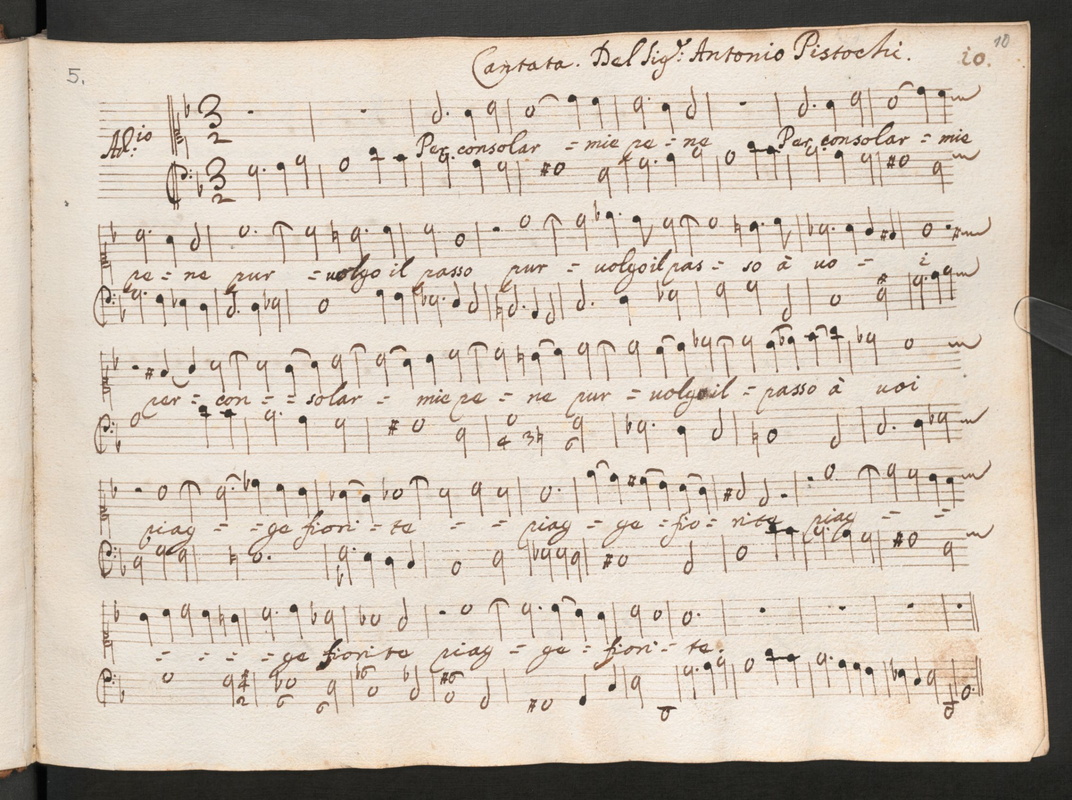 5.
Cantata. Del Sig.r Antonio Pistochi.
10
10.
Ad.io
3 2
Per consolar = mie pe = ne Per consolar = mie
3 2
pe = ne pur = uolgo il passo pur = uolgo il pas = so à uo = i
per = con = = solar = mie pe = ne pur = uolgo il = passo à uoi
4 3 6
piag = = ge fiori = te = = piag = ge = fio = rite piag = =
= = = = ge fiorite piag = ge = fiori = te.
4 2 6 6 6 6